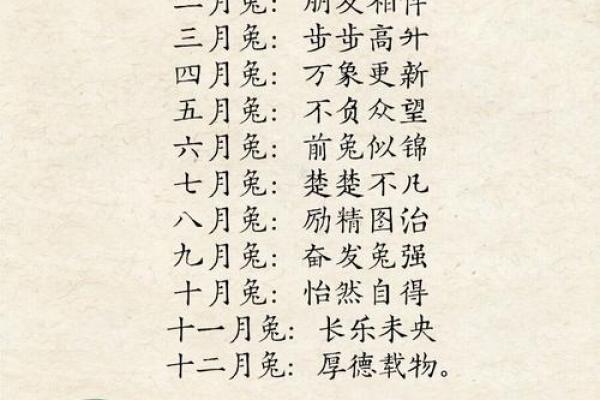 二月兔：朋友相伴
三月兔：步步高升
四月兔：万象更新
五月兔：不负众望
六月兔：前兔似锦
七月兔：楚楚不凡
八月兔：励精图治
九月兔：奋发兔强
十月兔：怡然自得
十一月兔：长乐未央
十二月兔：厚德载物。